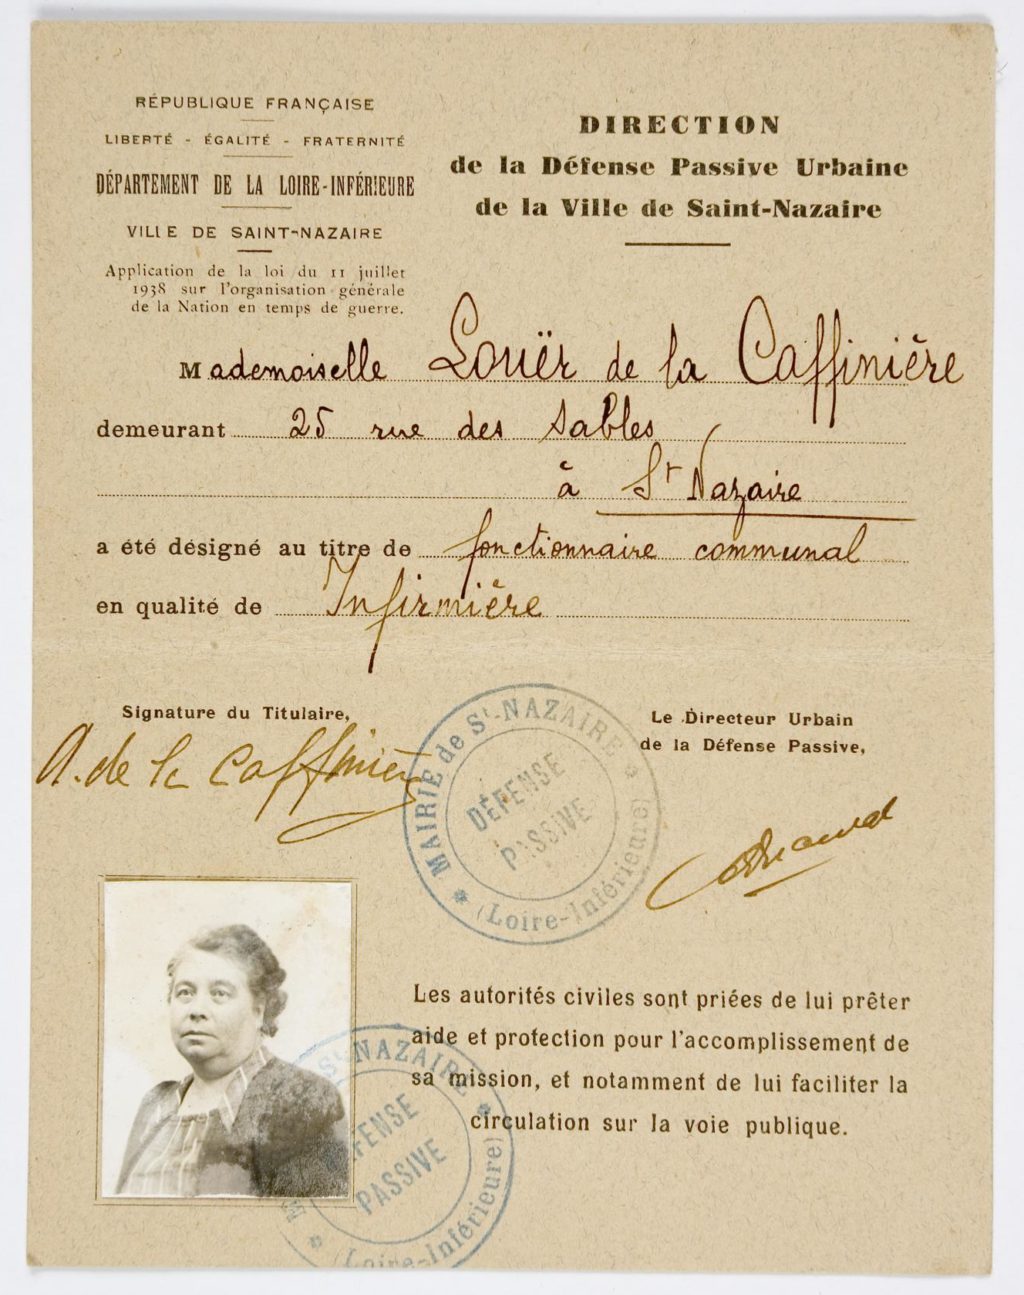 RÉPUBLIQUE FRANÇAISE
LIBERTÉ - ÉGALITÉ - FRATERNITÉ
DÉPARTEMENT DE LA LOIRE-INFÉRIEURE
VILLE DE SAINT-NAZAIRE
Application de la loi du 11 juillet
1938 sur l'organisation générale
de la Nation en temps de guerre.
DIRECTION
de la Défense Passive Urbaine
de la Ville de Saint-Nazaire
Mademoiselle Louër de la Caffinière
demeurant 25 rue des Sables
à St Nazaire
a été désigné au titre de fonctionnaire communal
en qualité de Infirmière
Signature du Titulaire,
A. de la Caffinière
MAIRIE de St-NAZAIRE
DÉFENSE
PASSIVE
(Loire-Inférieure)
Le Directeur Urbain
de la Défense Passive,
Les autorités civiles sont priées de lui prêter
aide et protection pour l'accomplissement de
sa mission, et notamment de lui faciliter la
circulation sur la voie publique.
M St-NAZAIRE
FENSE
PASSIVE
(Loire-Inférieure)